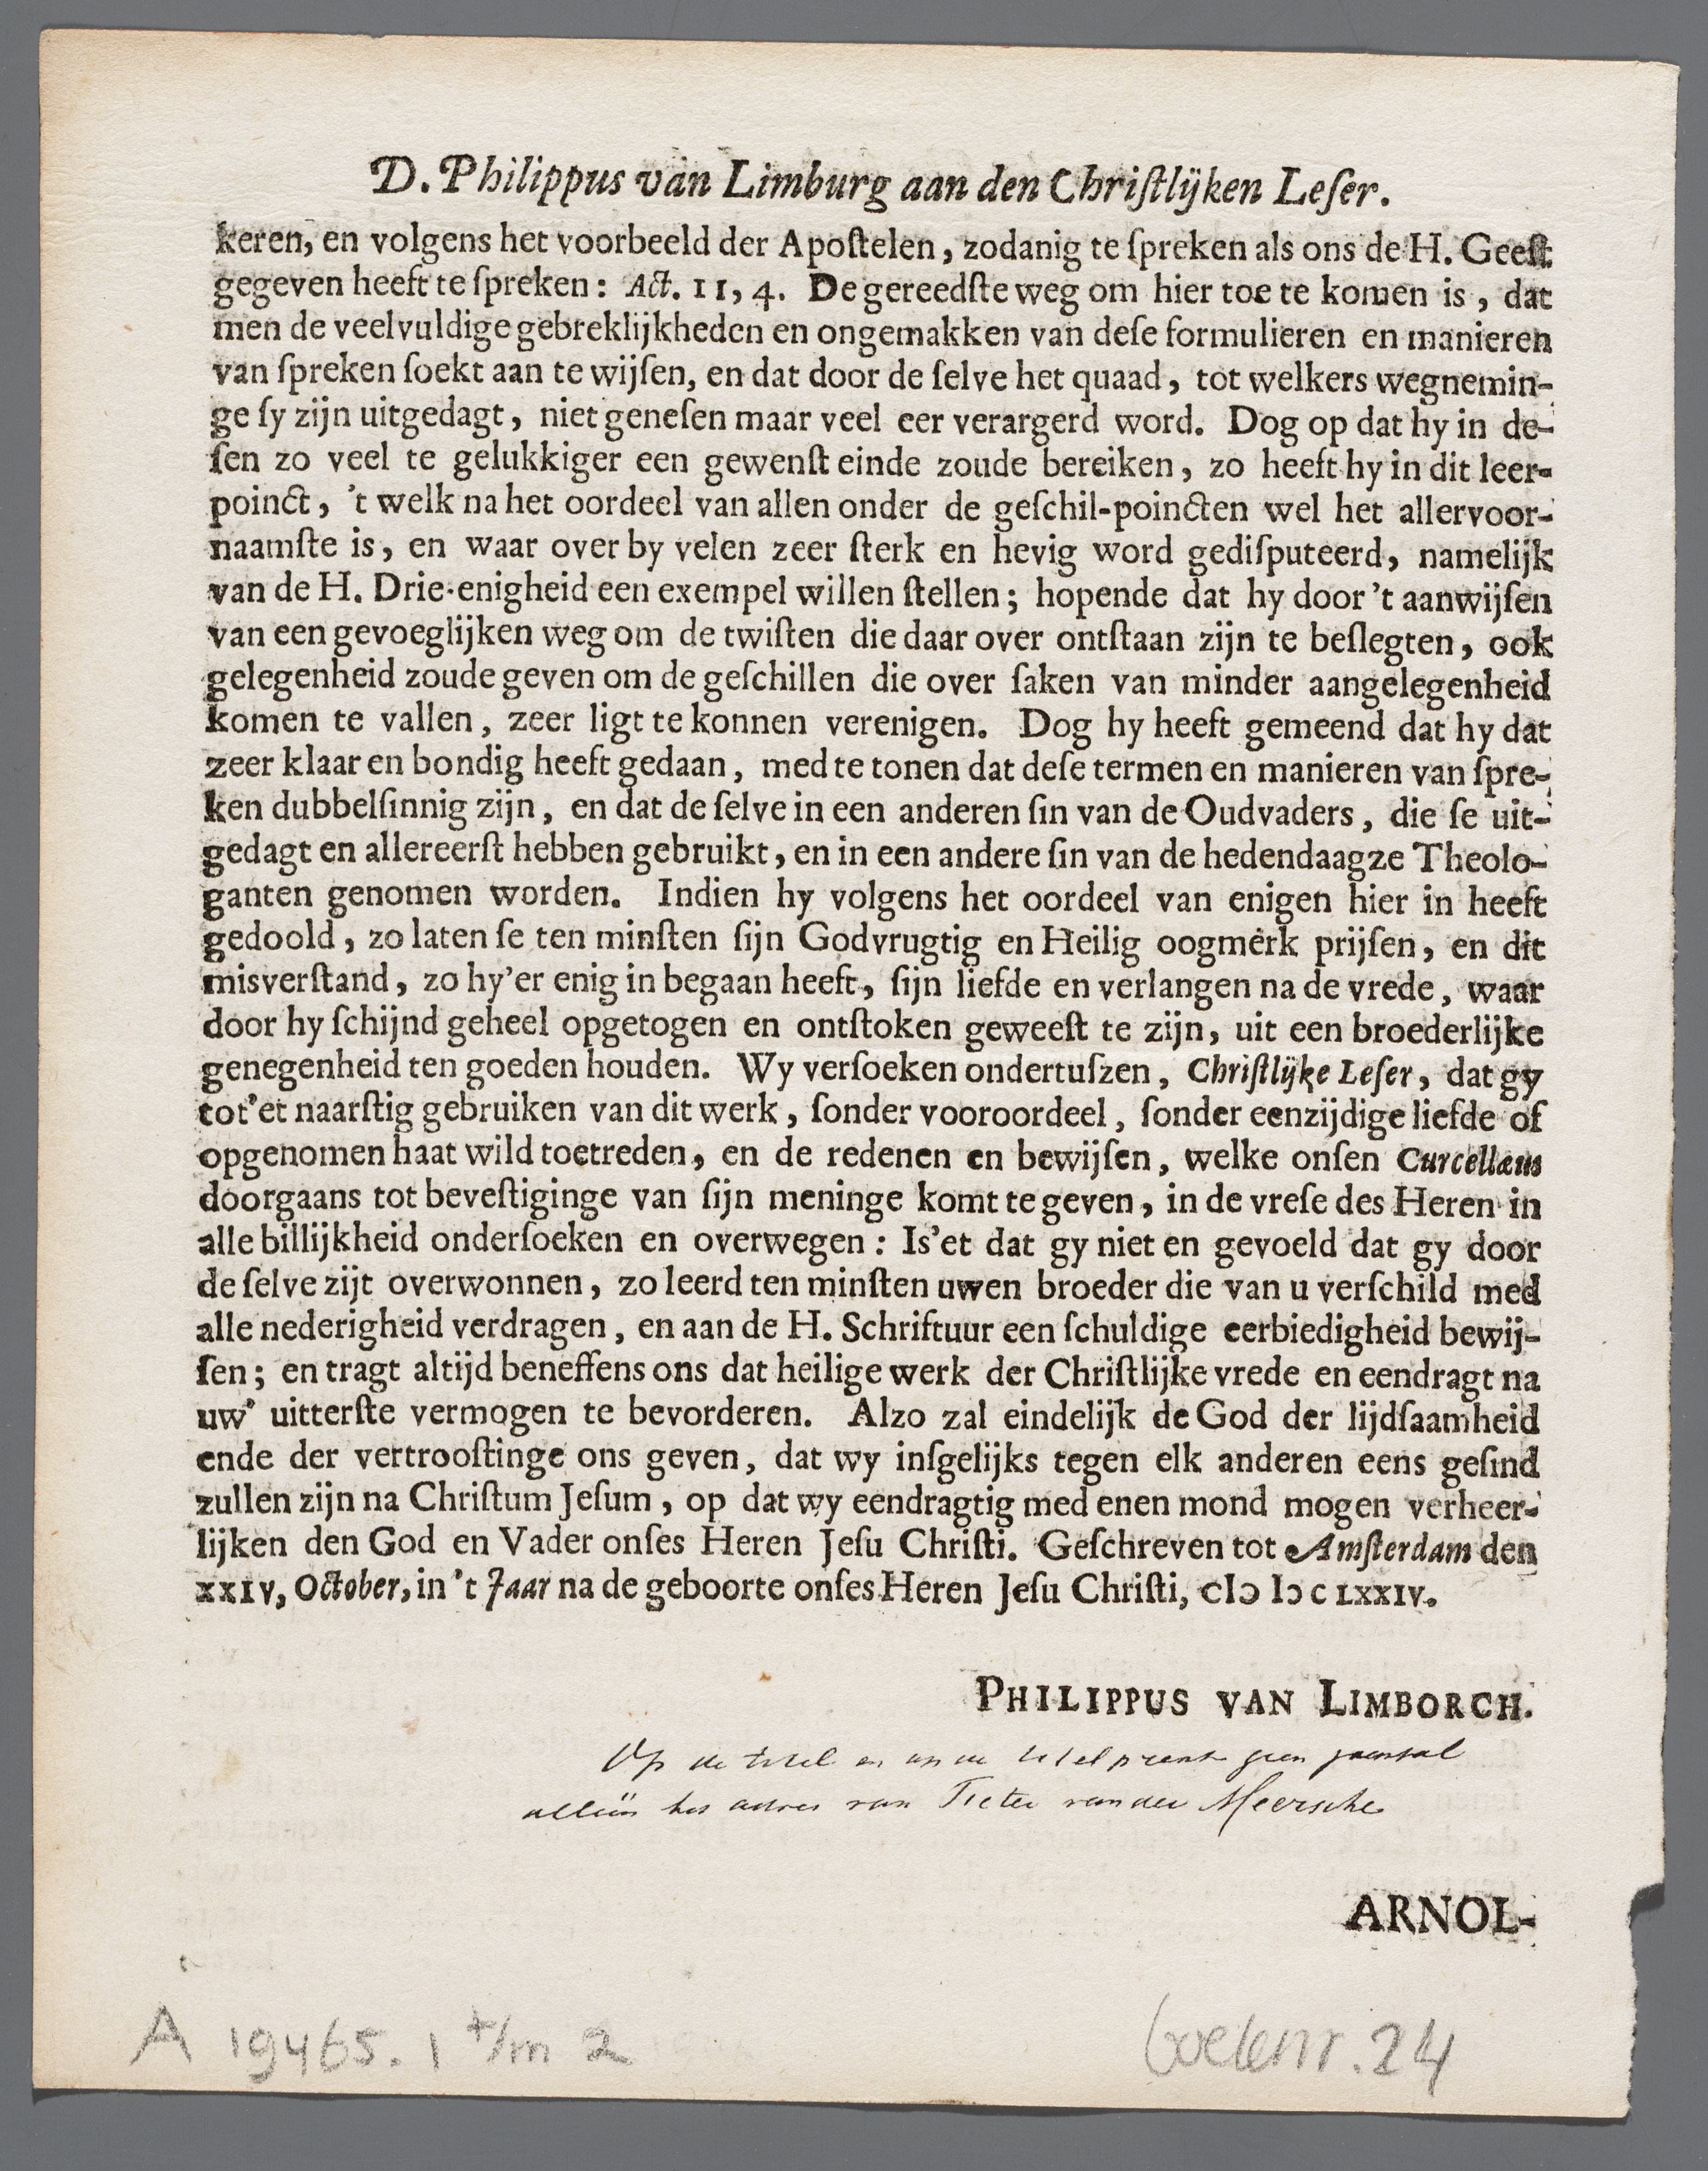 D. Philippus van Limburg aan den Chriſtlijken Leſer.
keren, en volgens het voorbeeld der Apoſtelen, zodanig te ſpreken als ons de H. Geeſt
gegeven heeft te ſpreken: Act. 11, 4. De gereedſte weg om hier toe te komen is, dat
men de veelvuldige gebreklijkheden en ongemakken van deſe formulieren en manieren
van ſpreken ſoekt aan te wijſen, en dat door de ſelve het quaad, tot welkers wegnemin-
ge ſy zijn uitgedagt, niet geneſen maar veel eer verargerd word. Dog op dat hy in de-
ſen zo veel te gelukkiger een gewenſt einde zoude bereiken, zo heeft hy in dit leer-
poinct, 't welk na het oordeel van allen onder de geſchil-poincten wel het allervoor-
naamſte is, en waar over by velen zeer ſterk en hevig word gediſputeerd, namelijk
van de H. Drie-enigheid een exempel willen ſtellen; hopende dat hy door 't aanwijſen
van een gevoeglijken weg om de twiſten die daar over ontſtaan zijn te beſlegten, ook
gelegenheid zoude geven om de geſchillen die over ſaken van minder aangelegenheid
komen te vallen, zeer ligt te konnen verenigen. Dog hy heeft gemeend dat hy dat
zeer klaar en bondig heeft gedaan, med te tonen dat deſe termen en manieren van ſpre-
ken dubbelſinnig zijn, en dat de ſelve in een anderen ſin van de Oudvaders, die ſe uit-
gedagt en allereerſt hebben gebruikt, en in een andere ſin van de hedendaagze Theolo-
ganten genomen worden. Indien hy volgens het oordeel van enigen hier in heeft
gedoold, zo laten ſe ten minſten ſijn Godvrugtig en Heilig oogmerk prijſen, en dit
misverſtand, zo hy'er enig in begaan heeft, ſijn liefde en verlangen na de vrede, waar
door hy ſchijnd geheel opgetogen en ontſtoken geweeſt te zijn, uit een broederlijke
genegenheid ten goeden houden. Wy verſoeken ondertuſzen, Chriſtlijke Leſer, dat gy
tot'et naarſtig gebruiken van dit werk, ſonder vooroordeel, ſonder eenzijdige liefde of
opgenomen haat wild toetreden, en de redenen en bewijſen, welke onſen Curcellæus
doorgaans tot beveſtiginge van ſijn meninge komt te geven, in de vreſe des Heren in
alle billijkheid onderſoeken en overwegen: Is'et dat gy niet en gevoeld dat gy door
de ſelve zijt overwonnen, zo leerd ten minſten uwen broeder die van u verſchild med
alle nederigheid verdragen, en aan de H. Schriftuur een ſchuldige eerbiedigheid bewij-
ſen; en tragt altijd beneffens ons dat heilige werk der Chriſtlijke vrede en eendragt na
uw' uitterſte vermogen te bevorderen. Alzo zal eindelijk de God der lijdſaamheid
ende der vertrooſtinge ons geven, dat wy inſgelijks tegen elk anderen eens geſind
zullen zijn na Chriſtum Jeſum, op dat wy eendragtig med enen mond mogen verheer-
lijken den God en Vader onſes Heren Jeſu Chriſti. Geſchreven tot Amſterdam den
XXIV, October, in 't Jaar na de geboorte onſes Heren Jeſu Chriſti, CIↃ IↃ C LXXIV.
PHILIPPUS VAN LIMBORCH.
Op de titel en op de titelprent geen jaartal
alleen het adres van Pieter van der Meersche
ARNOL-
A 19465. 1 t/m 2
boeknr. 24